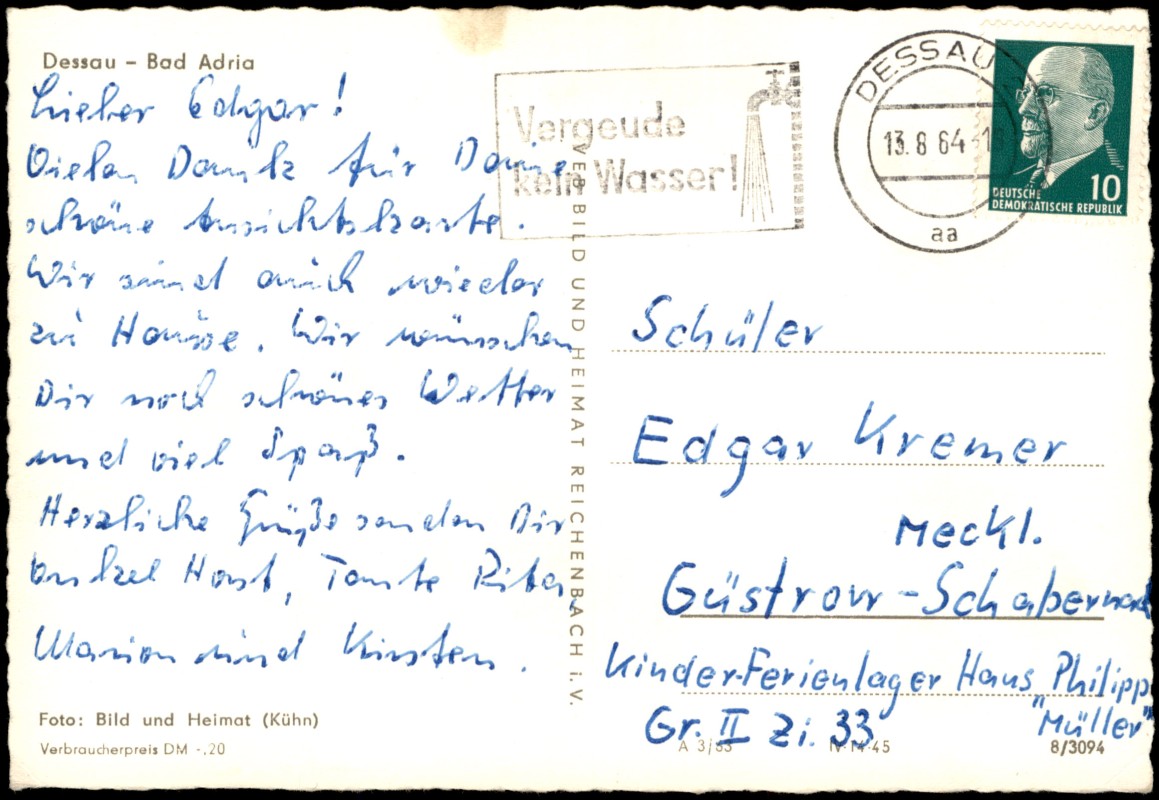 Dessau – Bad Adria
Lieber Edgar!
Vielen Dank für Deine
schöne Ansichtskarte.
Wir sind auch wieder
zu Hause. Wir wünschen
Dir noch schönes Wetter
und viel Spaß.
Herzliche Grüße senden Dir
Onkel Horst, Tante Rita,
Marion und Kirsten.
Foto: Bild und Heimat (Kühn)
Verbraucherpreis DM -,20
VEB BILD UND HEIMAT REICHENBACH i. V.
Vergeude
kein Wasser!
DESSAU
13.8.64
aa
10
DEUTSCHE
DEMOKRATISCHE REPUBLIK
Schüler
Edgar Kremer
Meckl.
Güstrow-Schabernack
Kinder-Ferienlager Haus Philipp
"Müller"
Gr. II Zi. 33
A 3/53 IV-14-45 8/3094